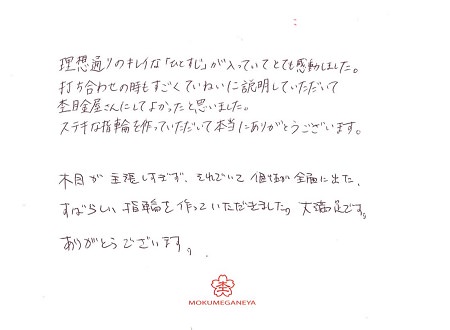 理想通りのキレイな「ひとすじ」が入っていてとても感動しました。
打ち合わせの時もすごくていねいに説明していただいて
杢目金屋さんにしてよかったと思いました。
ステキな指輪を作っていただいて本当にありがとうございます。
木目が主張しすぎず、それでいて個性が全面に出た、
すばらしい指輪を作っていただきました。大満足です。
ありがとうございます。
杢
MOKUMEGANEYA